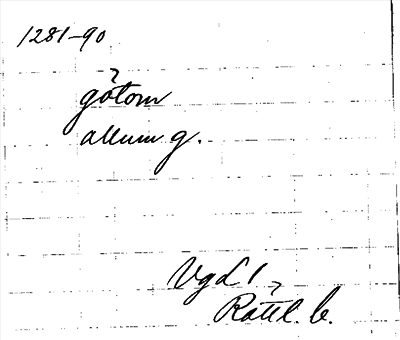 1281-90
gótom
allum g.
VgL I
Rätl. b.